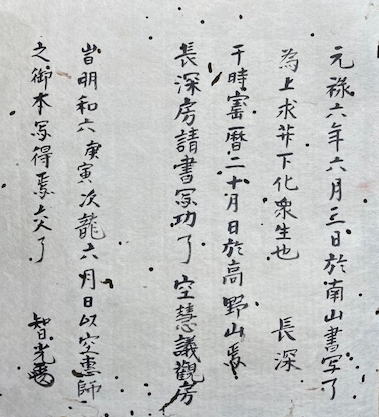 元禄六年六月三日於南山書写了
為上求井下化衆生也 長深
于時寳暦二十月日於高野山焉
長深房請書写功了 空慧議觀房
旹明和六庚寅次龍六月日以空惠師
之御本写得焉交了 智光